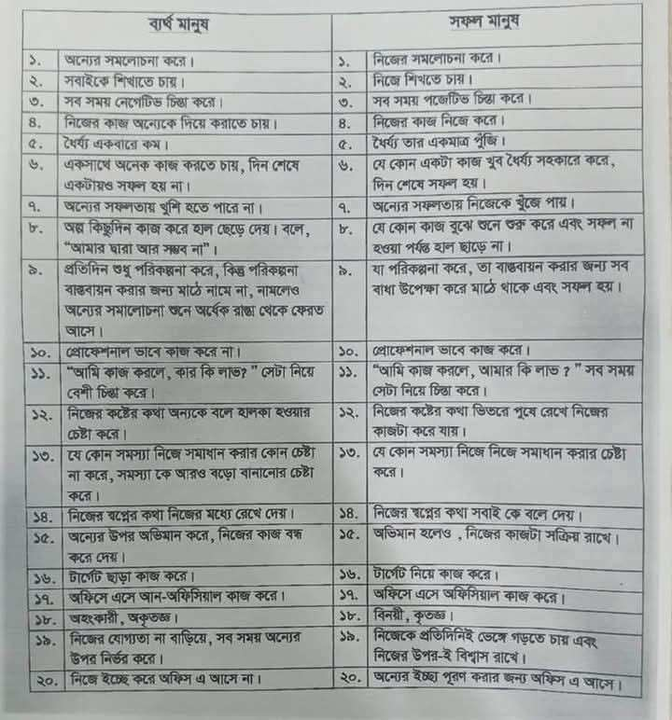 ব্যর্থ মানুষ
সফল মানুষ
১. অন্যের সমলোচনা করে।
১. নিজের সমলোচনা করে।
২. সবাইকে শিখাতে চায়।
২. নিজে শিখতে চায়।
৩. সব সময় নেগেটিভ চিন্তা করে।
৩. সব সময় পজেটিভ চিন্তা করে।
৪. নিজের কাজ অন্যেকে দিয়ে করাতে চায়।
৪. নিজের কাজ নিজে করে।
৫. ধৈর্য্য একবারে কম।
৫. ধৈর্য্য তার একমাত্র পুঁজি।
৬. একসাথে অনেক কাজ করতে চায়, দিন শেষে
একটায়ও সফল হয় না।
৬. যে কোন একটা কাজ খুব ধৈর্য্য সহকারে করে,
দিন শেষে সফল হয়।
৭. অন্যের সফলতায় খুশি হতে পারে না।
৭. অন্যের সফলতায় নিজেকে খুঁজে পায়।
৮. অল্প কিছুদিন কাজ করে হাল ছেড়ে দেয়। বলে,
“আমার দ্বারা আর সম্ভব না”।
৮. যে কোন কাজ বুঝে শুনে শুরু করে এবং সফল না
হওয়া পর্যন্ত হাল ছাড়ে না।
৯. প্রতিদিন শুধু পরিকল্পনা করে, কিন্তু পরিকল্পনা
বাস্তবায়ন করার জন্য মাঠে নামে না, নামলেও
অন্যের সমালোচনা শুনে অর্ধেক রাস্তা থেকে ফেরত
আসে।
৯. যা পরিকল্পনা করে, তা বাস্তবায়ন করার জন্য সব
বাধা উপেক্ষা করে মাঠে থাকে এবং সফল হয়।
১০. প্রোফেশনাল ভাবে কাজ করে না।
১০. প্রোফেশনাল ভাবে কাজ করে।
১১. “আমি কাজ করলে, কার কি লাভ?” সেটা নিয়ে
বেশী চিন্তা করে।
১১. “আমি কাজ করলে, আমার কি লাভ ?” সব সময়
সেটা নিয়ে চিন্তা করে।
১২. নিজের কষ্টের কথা অন্যকে বলে হালকা হওয়ার
চেষ্টা করে।
১২. নিজের কষ্টের কথা ভিতরে পুষে রেখে নিজের
কাজটা করে যায়।
১৩. যে কোন সমস্যা নিজে সমাধান করার কোন চেষ্টা
না করে, সমস্যা কে আরও বড়ো বানানোর চেষ্টা
করে।
১৩. যে কোন সমস্যা নিজে নিজে সমাধান করার চেষ্টা
করে।
১৪. নিজের স্বপ্নের কথা নিজের মধ্যে রেখে দেয়।
১৪. নিজের স্বপ্নের কথা সবাই কে বলে দেয়।
১৫. অন্যের উপর অভিমান করে, নিজের কাজ বন্ধ
করে দেয়।
১৫. অভিমান হলেও , নিজের কাজটা সক্রিয় রাখে।
১৬. টার্গেট ছাড়া কাজ করে।
১৬. টার্গেট নিয়ে কাজ করে।
১৭. অফিসে এসে আন-অফিসিয়াল কাজ করে।
১৭. অফিসে এসে অফিসিয়াল কাজ করে।
১৮. অহংকারী, অকৃতজ্ঞ।
১৮. বিনয়ী, কৃতজ্ঞ।
১৯. নিজের যোগ্যতা না বাড়িয়ে, সব সময় অন্যের
উপর নির্ভর করে।
১৯. নিজেকে প্রতিদিনই ভেঙ্গে গড়তে চায় এবং
নিজের উপর-ই বিশ্বাস রাখে।
২০. নিজে ইচ্ছে করে অফিস এ আসে না।
২০. অন্যের ইচ্ছা পূরণ করার জন্য অফিস এ আসে।